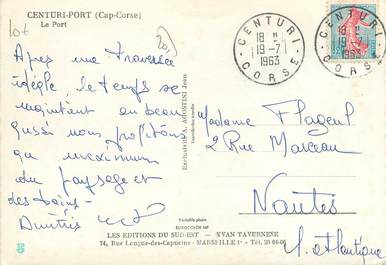 CENTURI-PORT (Cap-Corse)
Le Port
lot
20
CENTURI
18 H
19-7
1963
CORSE
CENTURI
18 H
19-7
1963
CORSE
Apres une traversée
idéale, le temps se
maintient au beau
aussi nous profitons
au maximum
du paysage et
des bains.
Dimitris
Exclusivité A. AGOSTINI Jean
Madame Flageul
2 Rue Marceau
Nantes
L. Atlantique
Véritable photo
EUROCOLOR MF
LES EDITIONS DU SUD-EST — YVAN TAVERNESE
74, Rue Longue-des-Capucins - MARSEILLE 1er - Tél. 20 66-06